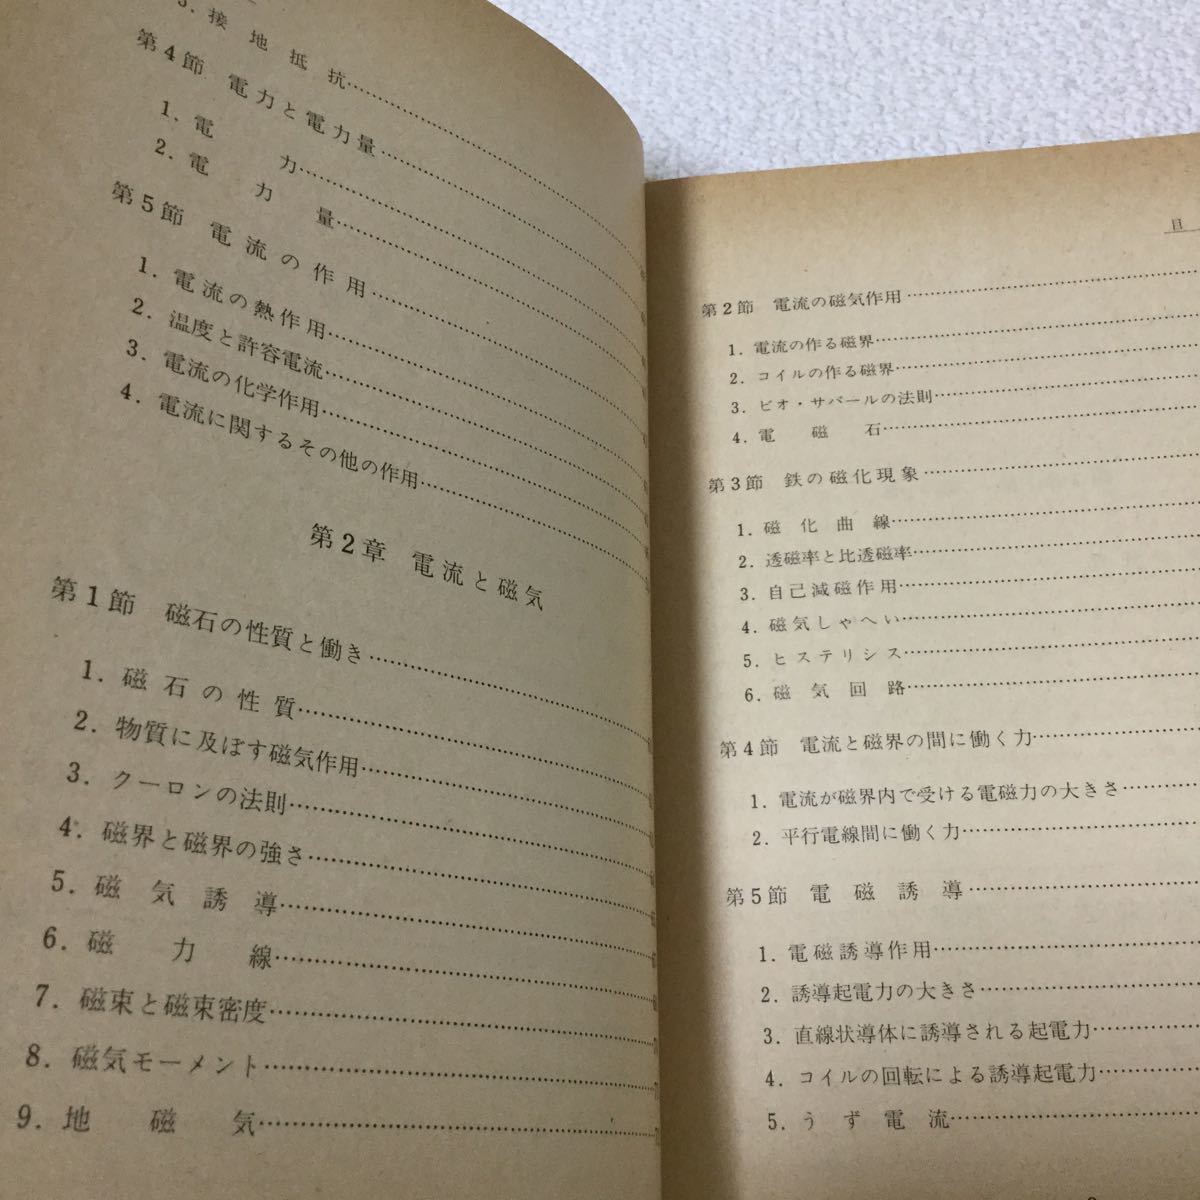 接地抵抗
第4節 電力と電力量
1. 電力
2. 電力量
第5節 電流の作用
1. 電流の熱作用
2. 温度と許容電流
3. 電流の化学作用
4. 電流に関するその他の作用
第2章 電流と磁気
第1節 磁石の性質と働き
1. 磁石の性質
2. 物質に及ぼす磁気作用
3. クーロンの法則
4. 磁界と磁界の強さ
5. 磁気誘導
6. 磁力線
7. 磁束と磁束密度
8. 磁気モーメント
9. 地磁気
目
第2節 電流の磁気作用
1. 電流の作る磁界
2. コイルの作る磁界
3. ビオ・サバールの法則
4. 電磁石
第3節 鉄の磁化現象
1. 磁化曲線
2. 透磁率と比透磁率
3. 自己減磁作用
4. 磁気しゃへい
5. ヒステリシス
6. 磁気回路
第4節 電流と磁界の間に働く力
1. 電流が磁界内で受ける電磁力の大きさ
2. 平行電線間に働く力
第5節 電磁誘導
1. 電磁誘導作用
2. 誘導起電力の大きさ
3. 直線状導体に誘導される起電力
4. コイルの回転による誘導起電力
5. うず電流